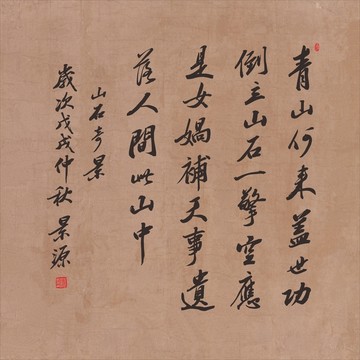 青山何来蓋世功
倒立山石一擎空應
是女媧補天事遺
落人間此山中
山石奇景
歲次戊戌仲秋景源